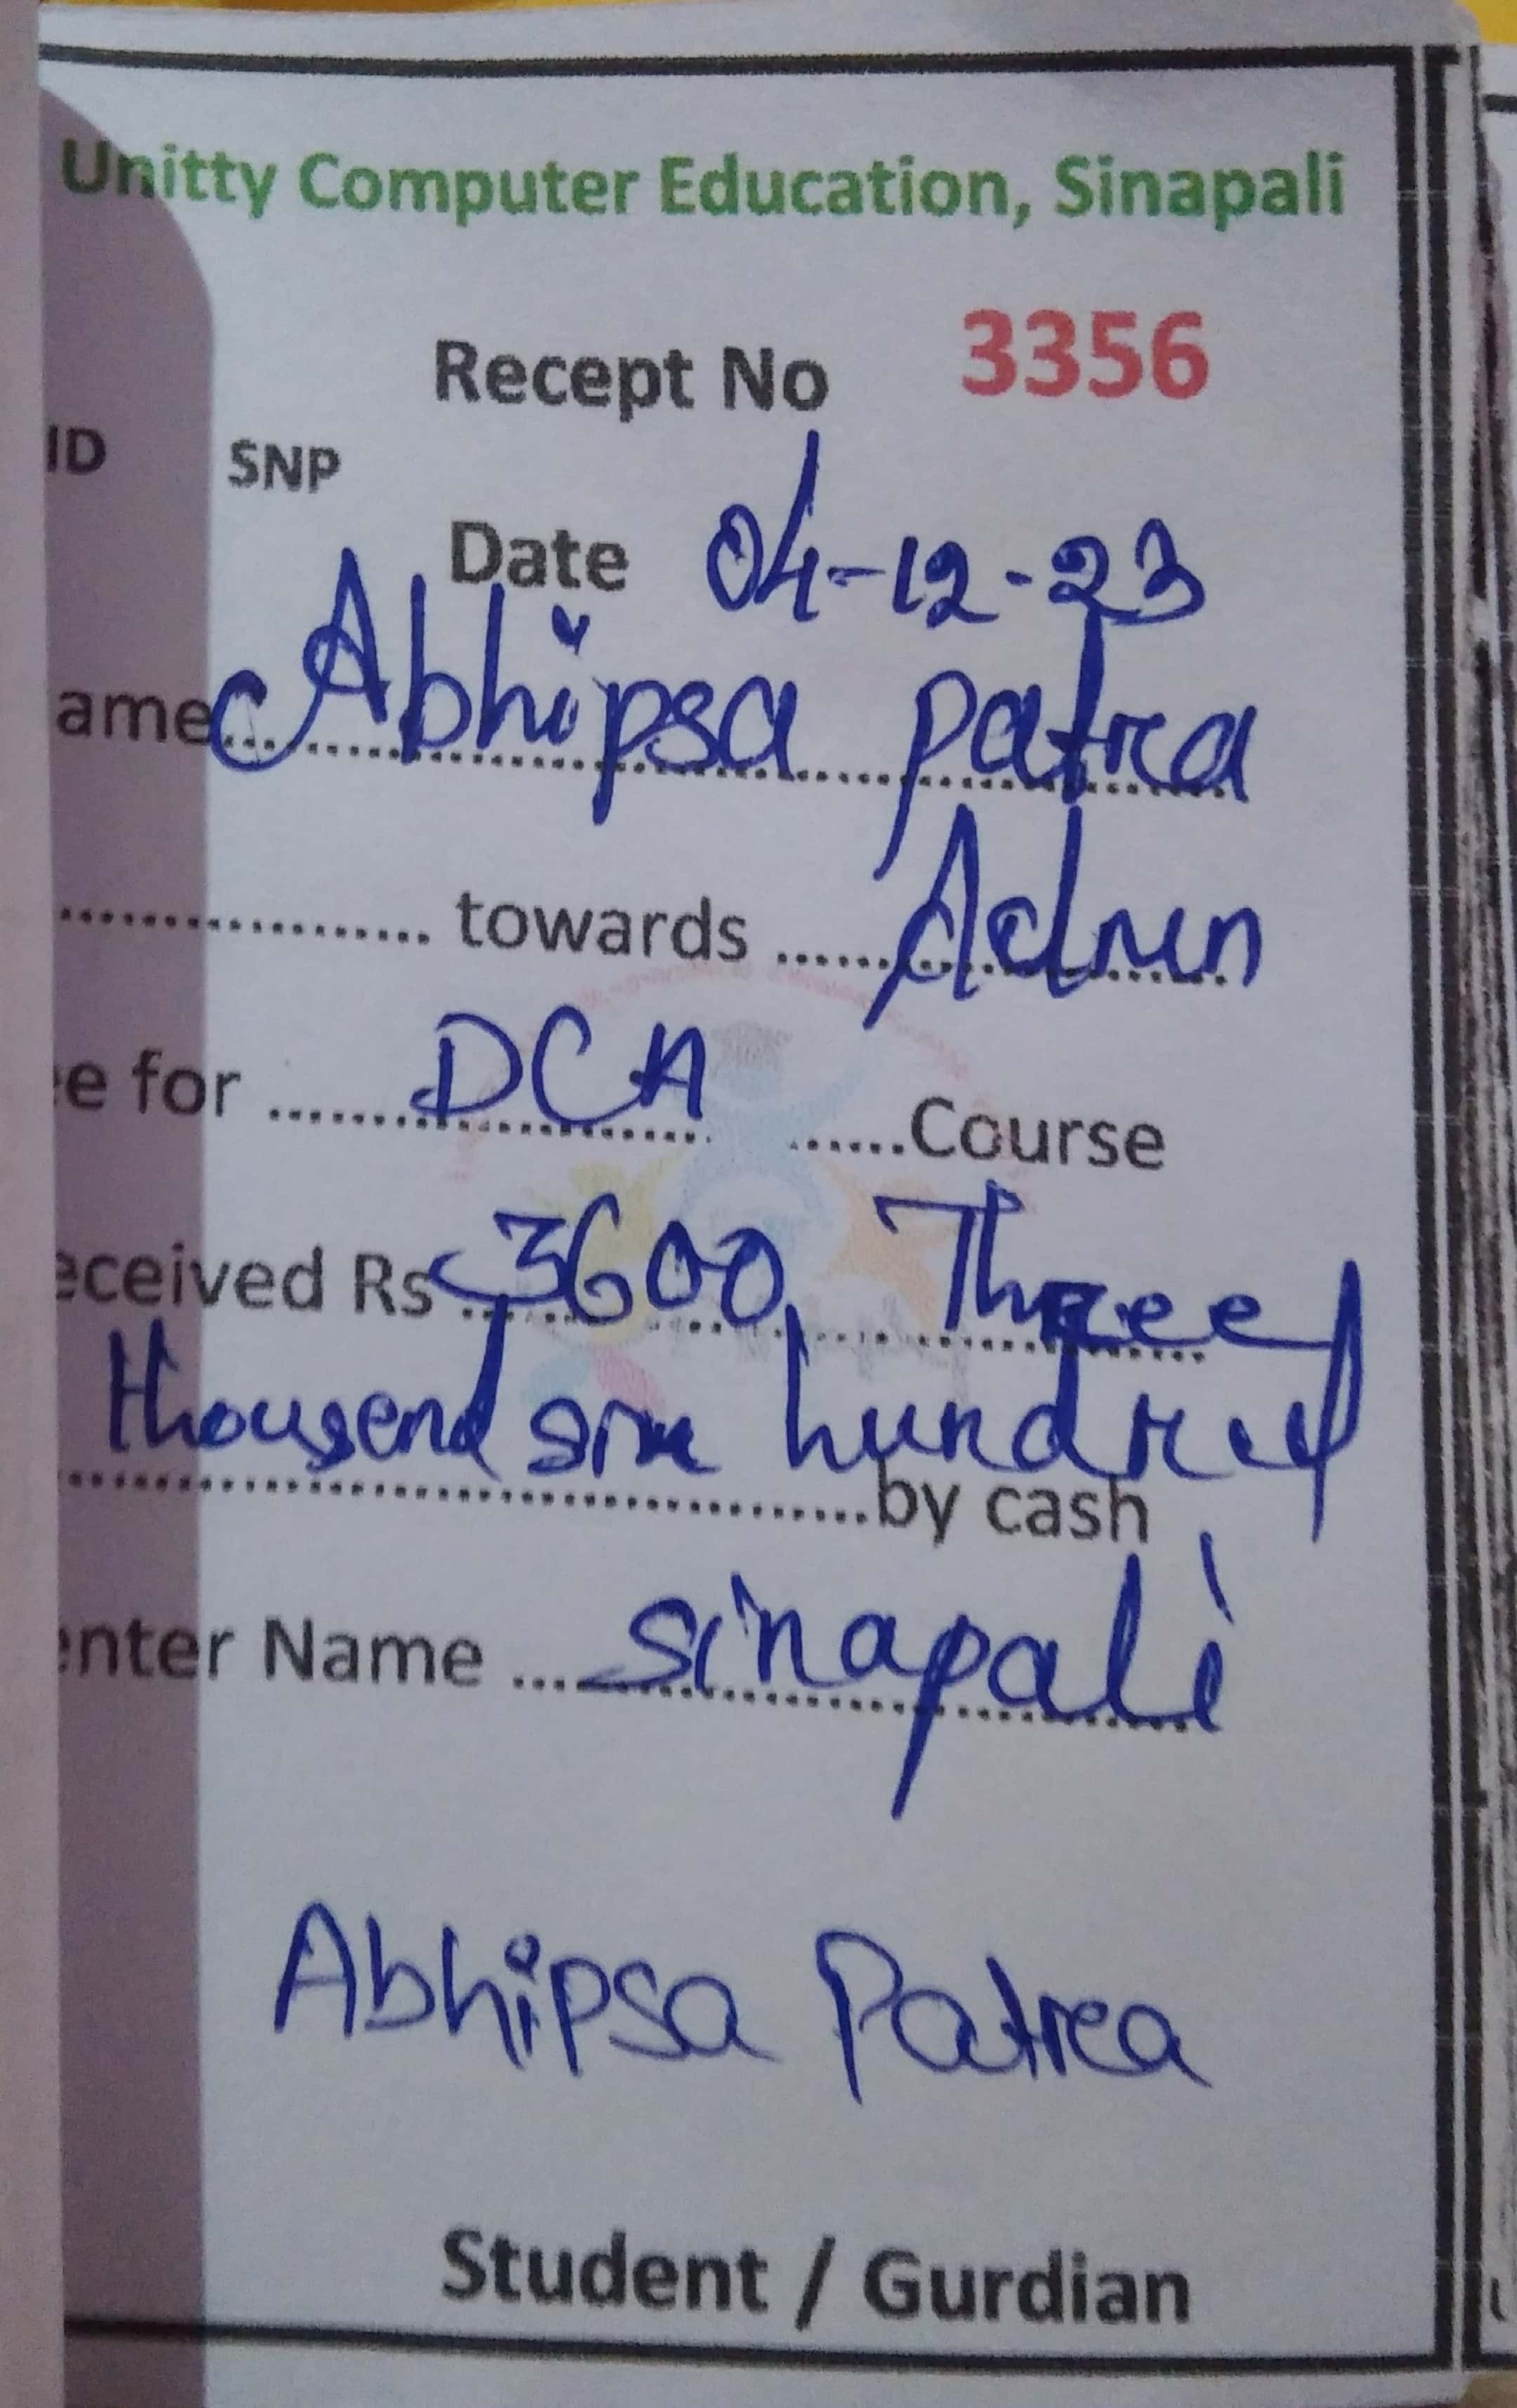 Unitty Computer Education, Sinapali
Recept No 3356
ID SNP
Date 04-12-23
ame Abhipsa patra
towards Admn
e for DCA Course
eceived Rs 3600 Three
thousend six hundred
by cash
enter Name Sinapali
Abhipsa Patra
Student / Gurdian